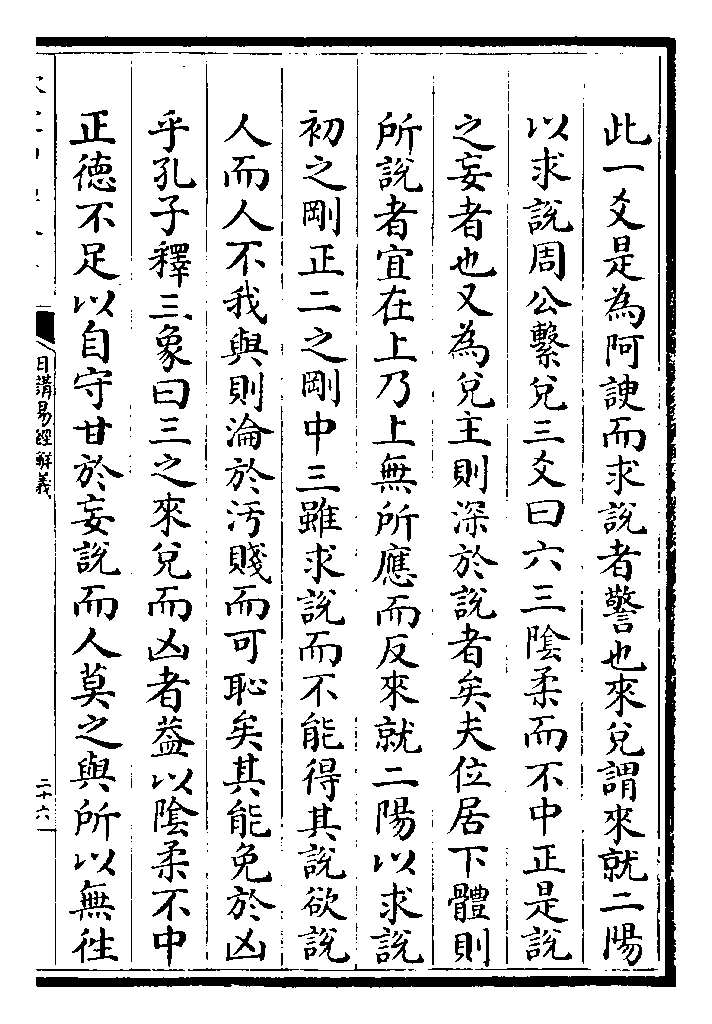 此一爻是為阿諛而求說者警也來兌謂來就二陽
以求說周公繫兌三爻曰六三陰柔而不中正是說
之妄者也又為兌主則深於說者矣夫位居下體則
所說者宜在上乃上無所應而反來就二陽以求說
初之剛正二之剛中三雖求說而不能得其說欲說
人而人不我與則淪於汚賤而可恥矣其能免於凶
乎孔子釋三象曰三之來兌而凶者葢以陰柔不中
正德不足以自守甘於妄說而人莫之與所以無徃
日講易經解義
二十六